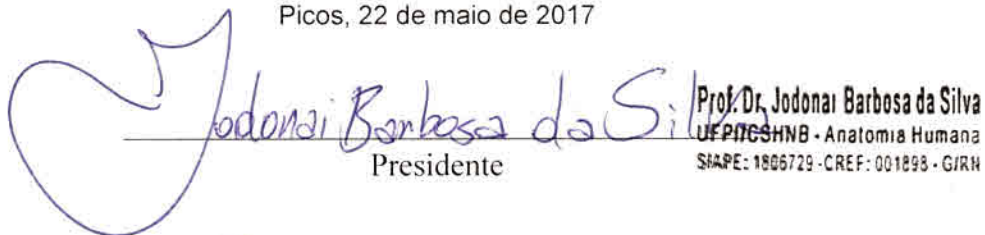 Picos, 22 de maio de 2017
Jodonai Barbosa da Silva
Presidente
Prof. Dr. Jodonai Barbosa da Silva
UFPI/CSHNB - Anatomia Humana
SIAPE: 1806729 - CREF: 001898 - G/RN